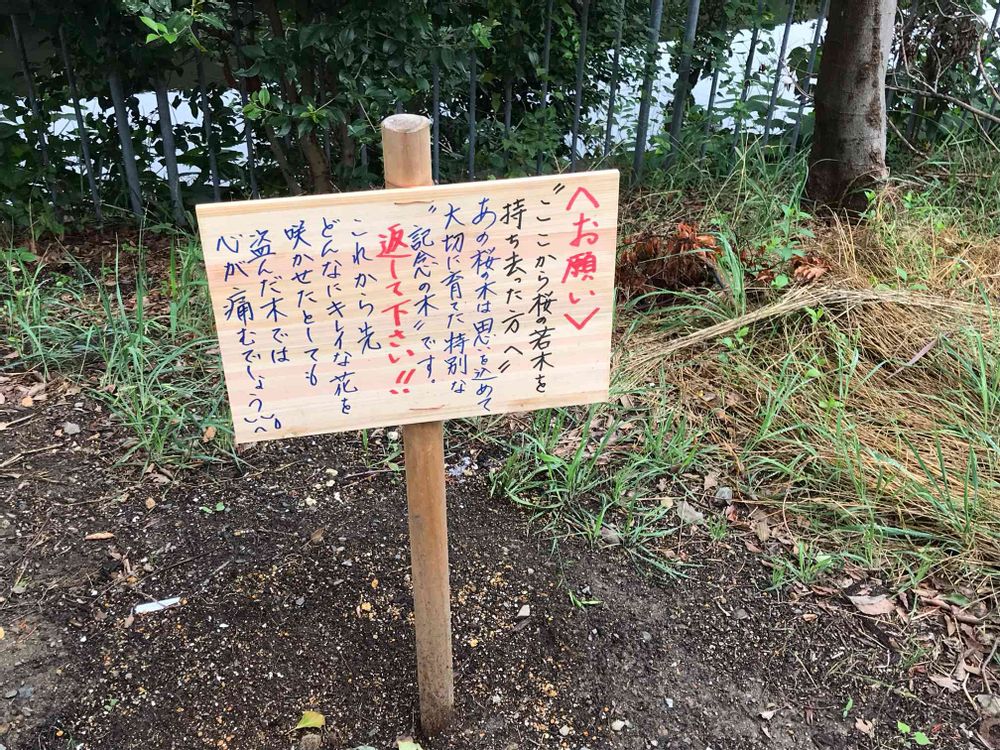 〈お願い〉
〝ここから桜の若木を
持ち去った方へ〟
あの桜の木は思いを込めて
大切に育てた特別な
〝記念の木〟です。
返して下さい!!
これから先
どんなにキレイな花を
咲かせたとしても
盗んだ木では
心が痛むでしょう。